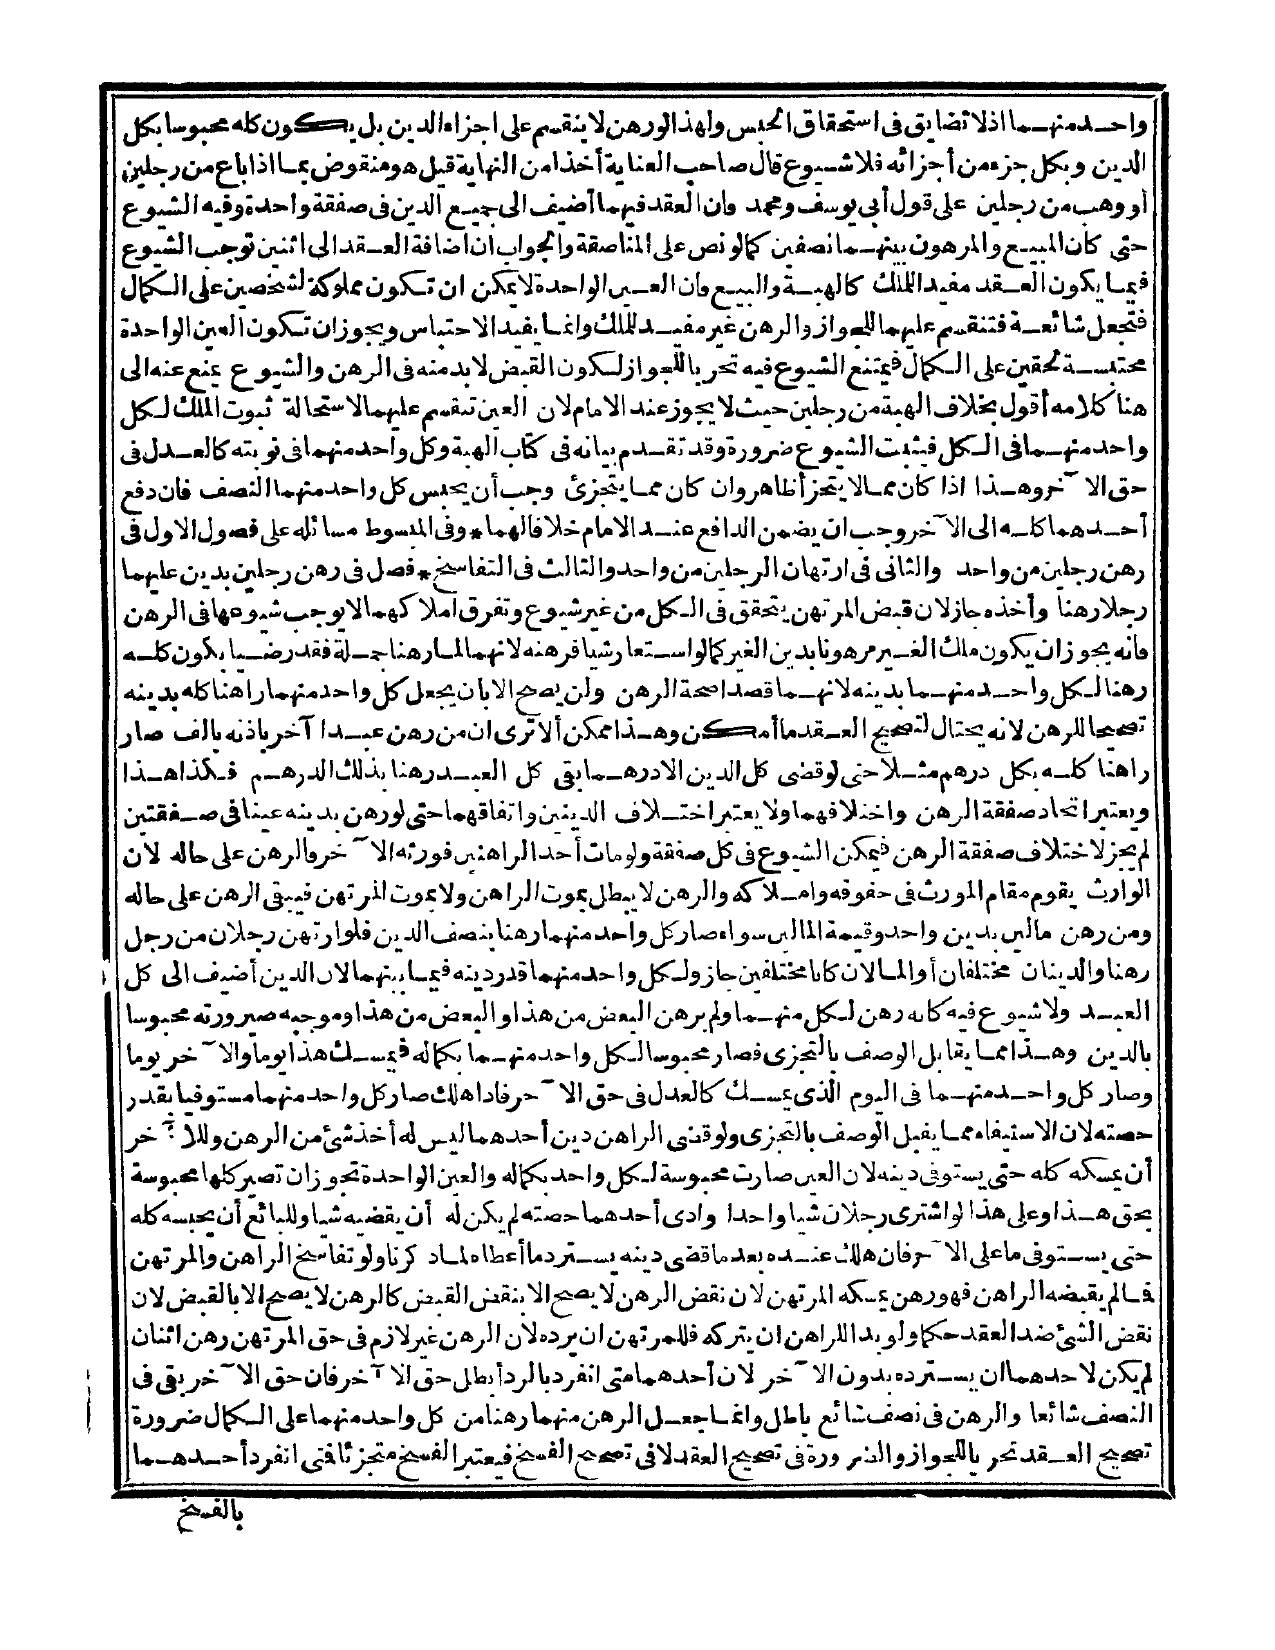 واحد منهما اذ لا تضايق فى استحقاق الحبس ولهذا لو رهن لا ينقسم على اجزاء الدين بل يكون كله محبوسا بكل
الدين وبكل جزء من أجزائه فلا شيوع قال صاحب العناية أخذا من النهاية قيل هو منقوض بما اذا باع من رجلين
أو وهب من رجلين على قول أبى يوسف ومحمد فان العقد فيهما أضيف الى جميع الدين فى صفقة واحدة وفيه الشيوع
حتى كان المبيع والمرهون بينهما نصفين كما لو نص على المناصفة والجواب ان اضافة العقد الى اثنين توجب الشيوع
فيما يكون العقد مفيد الملك كالهبة والبيع فان العين الواحدة لا يمكن ان تكون مملوكة لشخصين على الكمال
فتجعل شائعة فتنقسم عليهما للجواز والرهن غير مفيد للملك وانما يفيد الاحتباس ويجوز ان تكون العين الواحدة
محتبسة لحقين على الكمال فيمتنع الشيوع فيه تحريا للجواز لكون القبض لا بد منه فى الرهن والشيوع يمنع عنه الى
هنا كلامه أقول بخلاف الهبة من رجلين حيث لا يجوز عند الامام لان العين تنقسم عليهما لاستحالة ثبوت الملك لكل
واحد منهما فى الكل فيثبت الشيوع ضرورة وقد تقدم بيانه فى كتاب الهبة وكل واحد منهما فى نوبته كالعدل فى
حق الآخر وهذا اذا كان مما لا يتجزأ ظاهر وان كان مما يتجزئ وجب أن يحبس كل واحد منهما النصف فان دفع
أحدهما كله الى الآخر وجب ان يضمن الدافع عند الامام خلافا لهما * وفى المبسوط مسائله على فصول الاول فى
رهن رجلين من واحد والثانى فى ارتهان الرجلين من واحد والثالث فى التفاسخ * فصل فى رهن رجلين بدين عليهما
رجلا رهنا وأخذه جاز لان قبض المرتهن يتحقق فى الكل من غير شيوع وتفرق املاكهما لا يوجب شيوعها فى الرهن
فانه يجوز ان يكون ملك الغير مرهونا بدين الغير كما لو استعار شيا فرهنه لانهما لما رهنا جملة فقد رضيا بكون كله
رهنا لكل واحد منهما بدينه لانهما قصدا صحة الرهن ولن يصح الا بان يجعل كل واحد منهما راهنا كله بدينه
تصحيحا للرهن لانه يحتال لتصحيح العقد ما أمكن وهذا ممكن ألا ترى ان من رهن عبدا آخر باذنه بالف صار
راهنا كله بكل درهم مثلا حتى لو قضى كل الدين الا درهما بقى كل العبد رهنا بذلك الدرهم فكذا هذا
ويعتبر اتحاد صفقة الرهن واختلافهما ولا يعتبر اختلاف الدينين واتفاقهما حتى لو رهن بدينه عينا فى صفقتين
لم يجز لاختلاف صفقة الرهن فيمكن الشيوع فى كل صفقة ولو مات أحد الراهنين فورثه الآخر فالرهن على حاله لان
الوارث يقوم مقام المورث فى حقوقه واملاكه والرهن لا يبطل بموت الراهن ولا بموت المرتهن فيبقى الرهن على حاله
ومن رهن مالين بدين واحد وقيمة المالين سواء صار كل واحد منهما رهنا بنصف الدين فلو ارتهن رجلان من رجل
رهنا والدينان مختلفان أو المالان كانا مختلفين جاز ولكل واحد منهما قدر دينه فيما بينهما لان الدين أضيف الى كل
العبد ولا شيوع فيه كانه رهن لكل منهما ولم يرهن البعض من هذا والبعض من هذا وموجبه صيرورته محبوسا
بالدين وهذا مما يقابل الوصف بالتجزى فصار محبوسا لكل واحد منهما بكماله فيمسك هذا يوما والآخر يوما
وصار كل واحد منهما فى اليوم الذى يمسك كالعدل فى حق الآخر فاذا هلك صار كل واحد منهما مستوفيا بقدر
حصته لان الاستيفاء مما يقبل الوصف بالتجزى ولو قضى الراهن دين أحدهما ليس له أخذ شئ من الرهن وللآخر
أن يمسكه كله حتى يستوفى دينه لان العين صارت محبوسة لكل واحد بكماله والعين الواحدة تجوز ان تصير كلها محبوسة
بحق هذا وعلى هذا لو اشترى رجلان شيا واحدا وادى أحدهما حصته لم يكن له أن يقضيه شيا وللبائع أن يحبسه كله
حتى يستوفى ما على الآخر فان هلك عنده بعد ما قضى دينه يسترد ما أعطاه لما ذكرنا ولو تفاسخ الراهن والمرتهن
فما لم يقبضه الراهن فهو رهن يمسكه المرتهن لان نقض الرهن لا يصح الا بنقض القبض كالرهن لا يصح الا بالقبض لان
نقض الشئ ضد العقد حكما ولو بدا للراهن ان يتركه فللمرتهن ان يرده لان الرهن غير لازم فى حق المرتهن رهن اثنان
لم يكن لاحدهما ان يسترده بدون الآخر لان أحدهما متى انفرد بالرد أبطل حق الآخر فان حق الآخر بقى فى
النصف شائعا والرهن فى نصف شائع باطل وانما جعل الرهن منهما رهنا من كل واحد منهما على الكمال ضرورة
تصحيح العقد تحريا للجواز والضرورة فى تصحيح العقد لا فى تصحيح الفسخ فيعتبر الفسخ متجزئا فتى انفرد أحدهما
بالفسخ